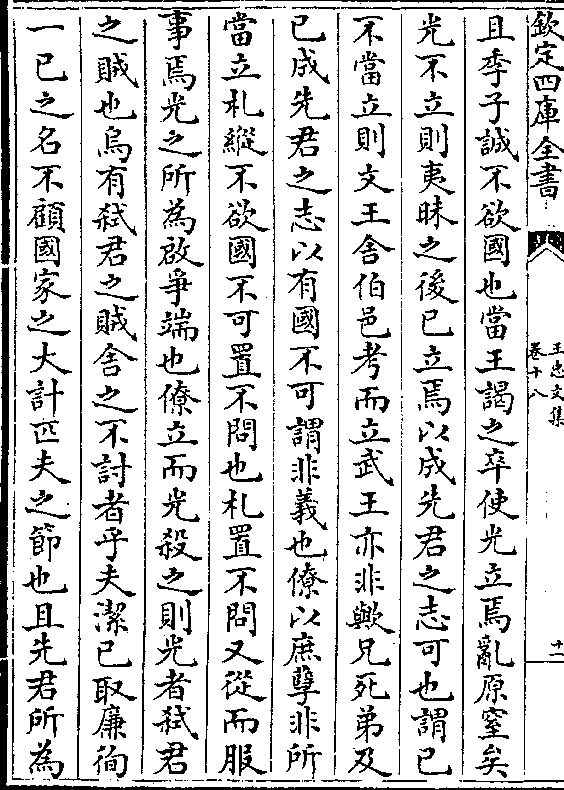 欽定四庫全書
王忠文集
卷十八
十一
且季子誠不欲國也當王謁之卒使光立焉亂原窒矣
光不立則夷昧之後已立焉以成先君之志可也謂已
不當立則文王舍伯邑考而立武王亦非歟兄死弟及
已成先君之志以有國不可謂非義也僚以庶孽非所
當立札縱不欲國不可置不問也札置不問又從而服
事焉光之所為啟爭端也僚立而光殺之則光者弒君
之賊也烏有弒君之賊舍之不討者乎夫潔已取廉徇
一已之名不顧國家之大計匹夫之節也且先君所為